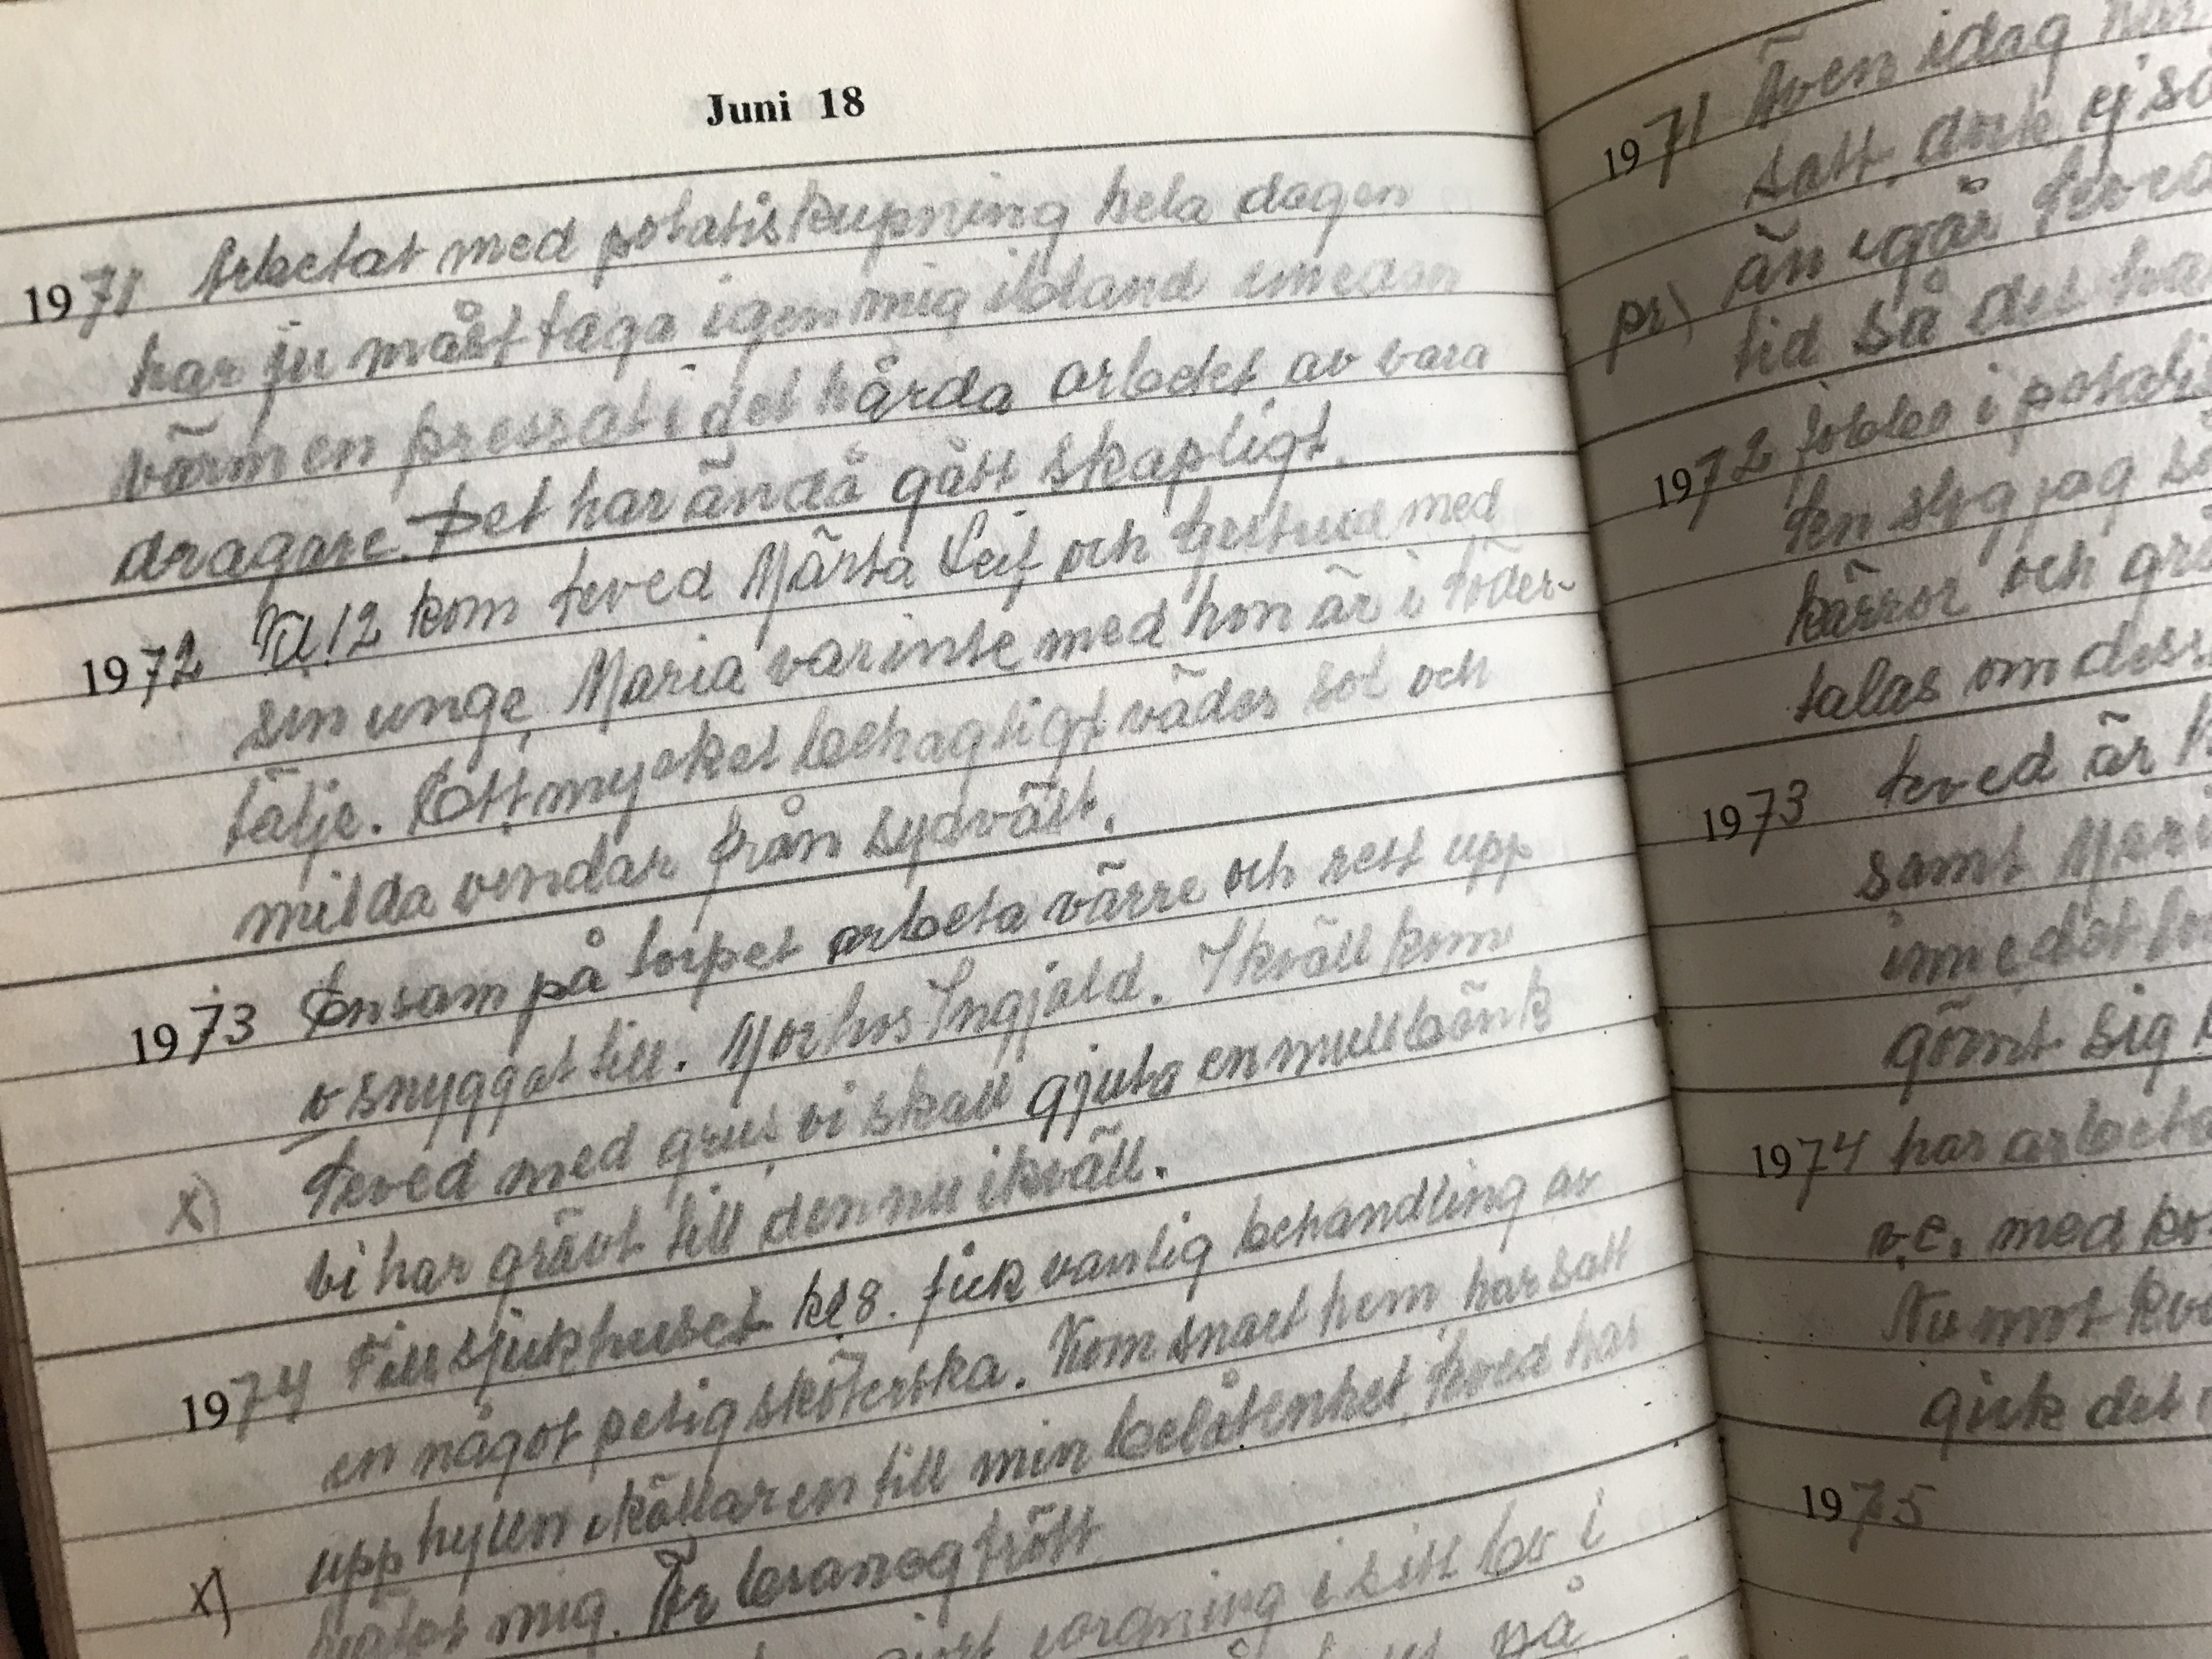 Juni 18
1971 Arbetat med potatiskupning hela dagen
har ju måst taga igen mig ibland emedan
värmen pressat i det hårda arbetet av vara
dragare. Det har ändå gått skapligt.
1972 Til 12 kom Feved Märta Leif och Gertrud med
sin unge, Maria var inte med hon är i Söder-
tälje. Ett mycket behagligt väder sol och
milda vindar från sydväst.
1973 Ensam på torpet arbeta värre och rest upp
o snyggat till. Mor hos Ingjald. I kväll kom
x) Feved med grus, vi skall gjuta en mullbänk
vi har grävt till den nu ikväll.
1974 Till sjukhuset kl 8. fick vanlig behandling av
en något petig sköterska. Kom snart hem, har satt
upp hyllen i källaren till min belåtenhet, Feved har
x) hjälpt mig. Är bra nog trött
gjort iordning i sitt
på
1971 Även idag
satt, dock ej så
än igår Feved
pr) tid så det
1972 Jobba i potatis
den slog jag
kärror och
talas om dess
1973 Feved är
samt Mari
inne det
gömt sig
1974 har arbeta
v.e. med
Nu mot kvä
gick det
1975